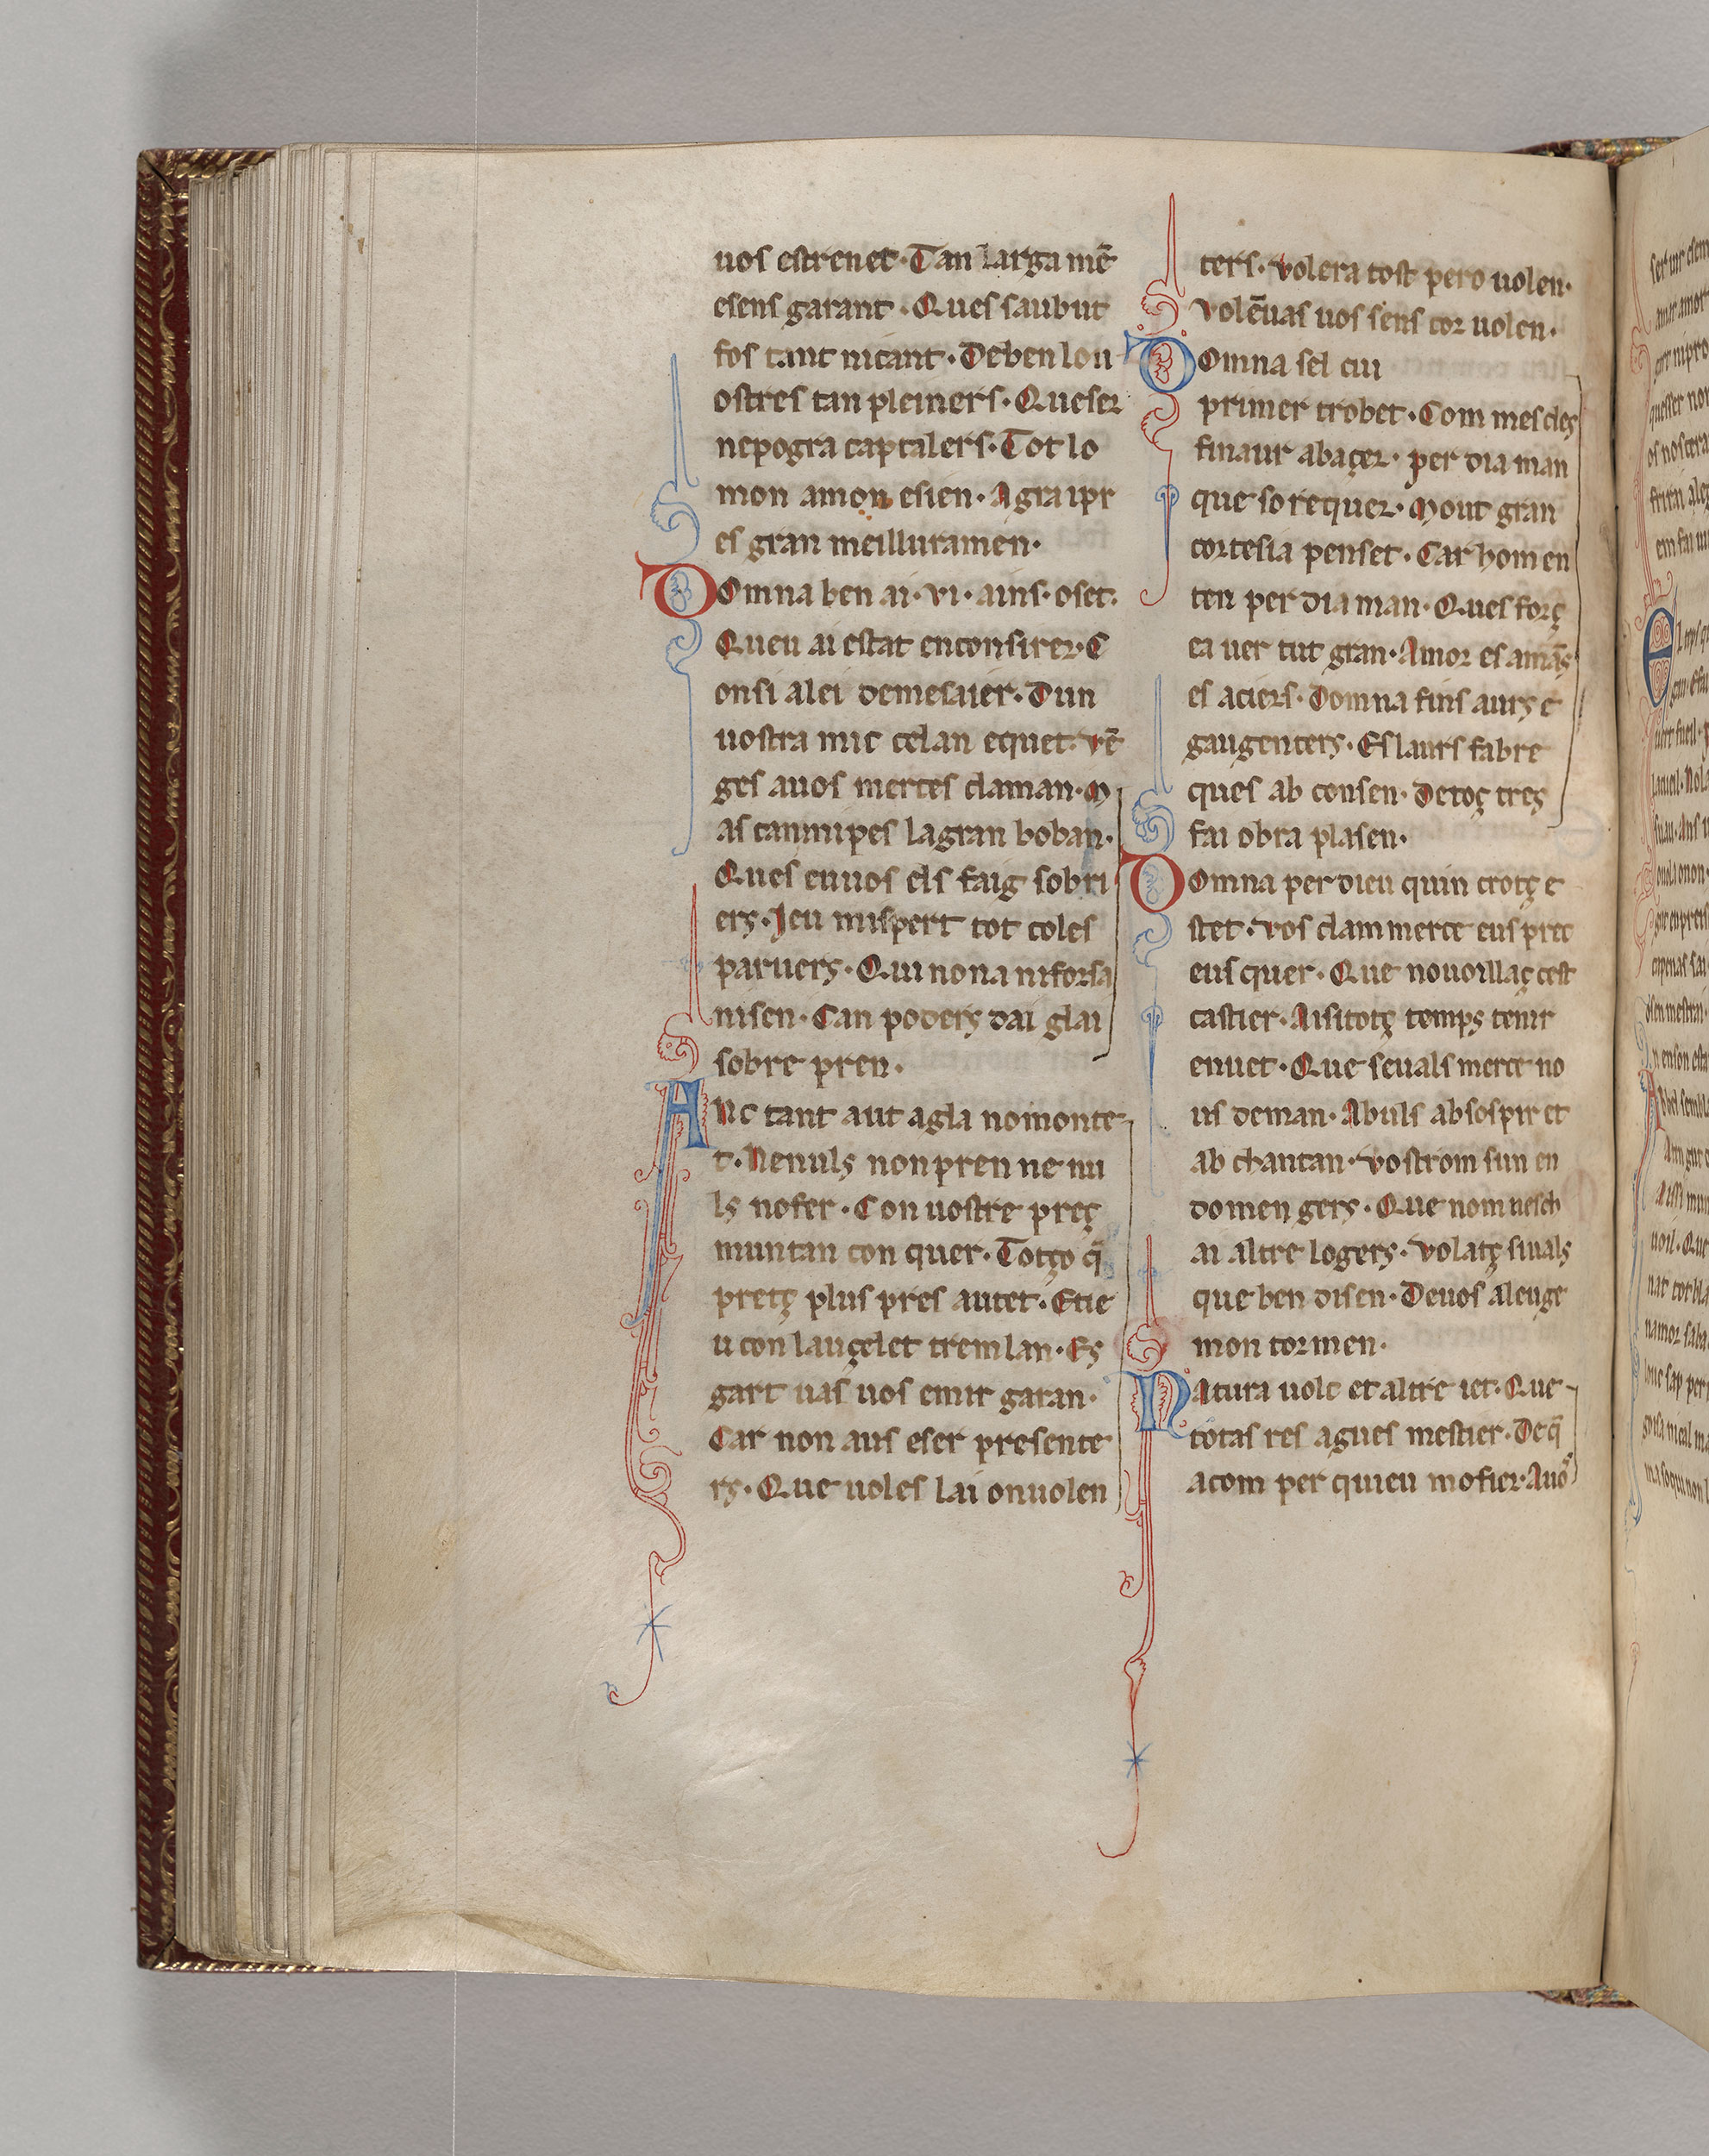 uos estrenet · Tan larga mē
esens garant · Ques saubut
fos tant nicant · Deben lou
ostres tan pleiners · Queser
nepogra captalers · Tot lo
mon amon esien · Agra ipr
es gran meilluramen ·
Domna ben ai · vi · ains · oset ·
Queu ai estat enconsirer · C
onsi a lei demesuier · Dun
uostra mic celan equet · vē
ges auos merces claman · M
as canmipes lagran boban ·
Ques enuos els faig sobri
ers · Jeu mispert tot coles
paruers · Qui non a ni forsa
nisen · Can poders dai glai
sobre pren ·
Anc tant aut agla nomonte
t · Nenuls non pren ne nu
ls nofer · Con uostre preç
muntan con quer · Totço q̄
pretç plus pres autet · Etie
u con lauçelet tremlan · Es
gart uas uos emir garan ·
Car non aus eser presente
rs · Que uoles lai onuolen
ters · volera tost pero uolen ·
Volēuas uos sens cor uolen ·
Domna sel cui
primer trobet · Com mescles
finaur abaçer · per dia man
que so requer · Mout gran
cortesia penset · Car hom en
ten per dia man · Ques forç
ea uer tut gran · Amor es amās
es aciers · Domna fins aurs e
gaugenters · Es laurs fabre
ques ab consen · Detoç tres
fai obra plasen ·
Domna per dieu quin crotç e
stet · vos clam merce eus prec
eus quer · Que nouoillaç cest
castier · Aisi totç temps tenir
enuet · Que seuals merce no
us deman · Abuls ab sospir et
ab chantan · vostrom sun en
domengers · Que nom uesch
ai altre logers · volatç siuals
que ben disen · Deuos aleuge
mon tormen ·
Natura uolc et altre iet · Que
totas res agues mestier · Deq̄
acom per quieu mofier · Auo